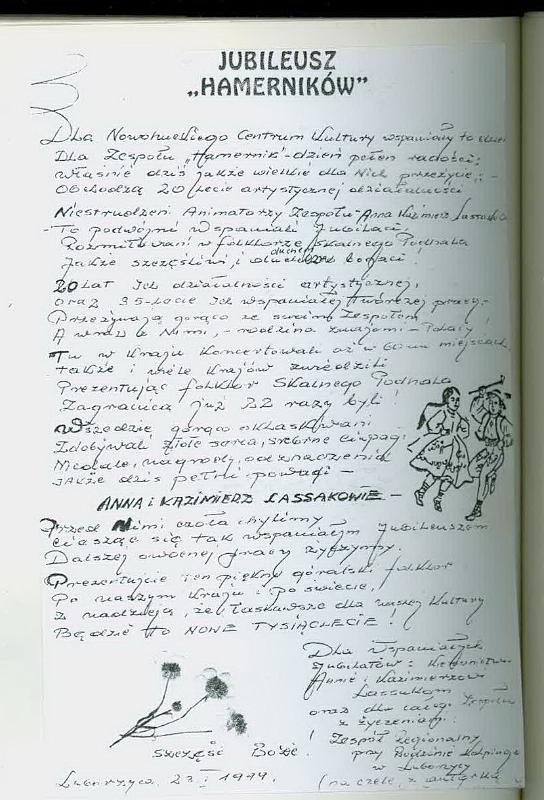 JUBILEUSZ
„HAMERNIKÓW”
Dla Nowohuckiego Centrum Kultury wspaniały to dzień
Dla Zespołu „Hamernik” - dzień pełen radości;
Właśnie dziś jakże wielkie dla Nich przeżycie; -
Obchodzą 20 lecie artystycznej działalności
Niestrudzeni Animatorzy Zespołu - Anna Kazimierz Lassak
- To podwójni Wspaniali Jubilaci,
Rozmiłowani w folklorze Skalnego Podhala
Jakże szczęśliwi, i duchem bogaci!
20 lat Ich działalności artystycznej,
oraz 35-lecie Ich wspaniałej twórczej pracy;
Przeżywają gorąco ze swoim Zespołem
A wraz z Nimi, - rodzina znajomi - Polacy!
Tu w Kraju Koncertowali aż w miejscach,
także i wiele Krajów zwiedzili
Prezentując folklor Skalnego Podhala
Zagranicą już 32 razy byli!
Wszędzie gorąco oklaskiwani
Zdobywali złote serca, srebrne ciupagi
Medale, nagrody, odznaczenia
Jakże dziś pełni powagi -
ANNA i KAZIMIERZ LASSAKOWIE -
Przed Nimi czoła chylimy
Ciesząc się tak wspaniałym Jubileuszem
Dalszej owocnej pracy życzymy.
Prezentujcie ten piękny góralski folklor
Po naszym Kraju i po świecie,
Z nadzieją, że łaskawsze dla naszej Kultury
Będzie to NOWE TYSIĄCLECIE!
Dla Wspaniałych
Jubilatów: Kierownictwu
Annie i Kazimierzowi
Lassakom
oraz dla całego Zespołu
z życzeniami:
Szczęść Boże!
Zespół Regionalny
przy Rodzinie Kolpinga
w Luborzycy
Luborzyca 23. I 1999.
(na czele, z autorką